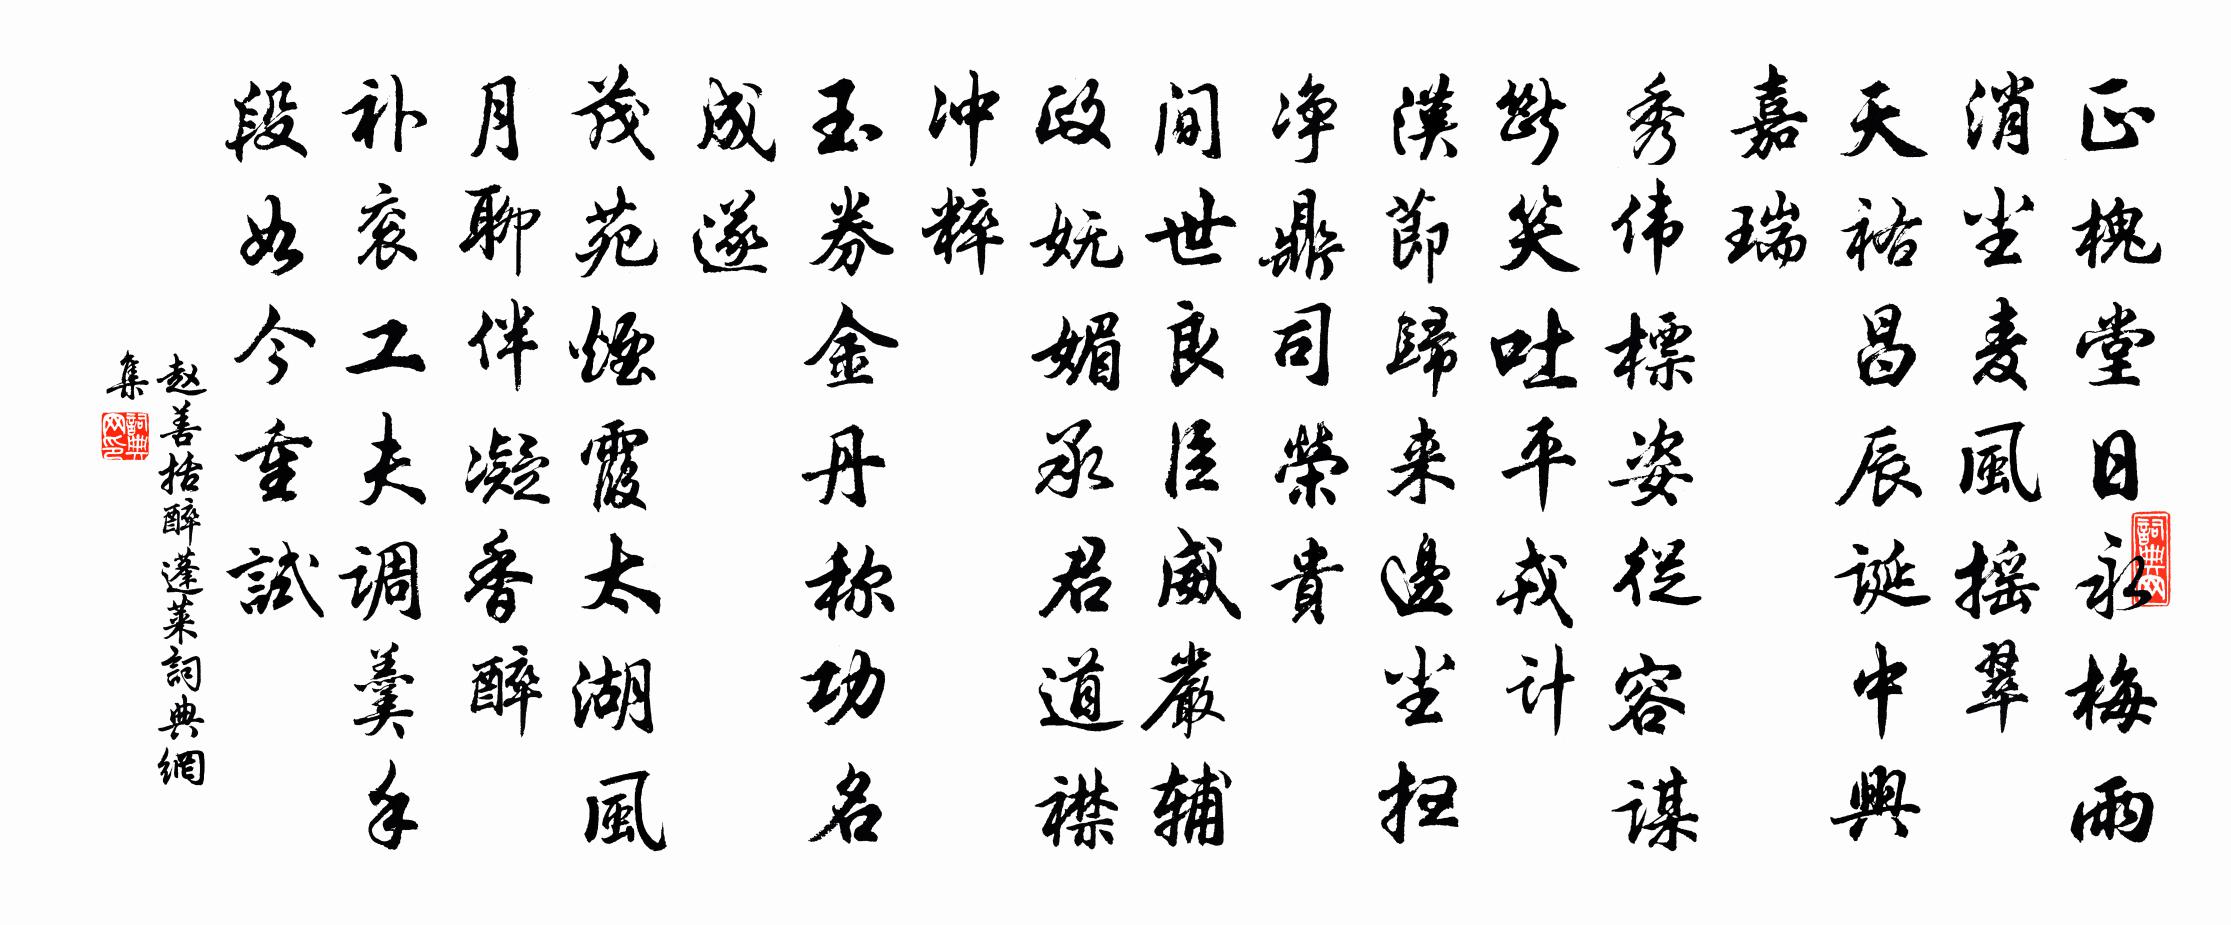 正槐堂日永梅雨
消尘麦風摇翠
天祐昌辰诞中興
嘉瑞
秀伟標姿從容谋
断笑吐平戎计
漢節歸来邊尘扫
净鼎司榮貴
间世良臣威嚴辅
政妩媚承君道襟
冲粹
玉券金丹称功名
成遂
茂苑煙霞太湖風
月聊伴凝香醉
补衮工夫调羹手
段如今重試
赵善括醉蓬莱詞典網
集
詞典網
詞典網印